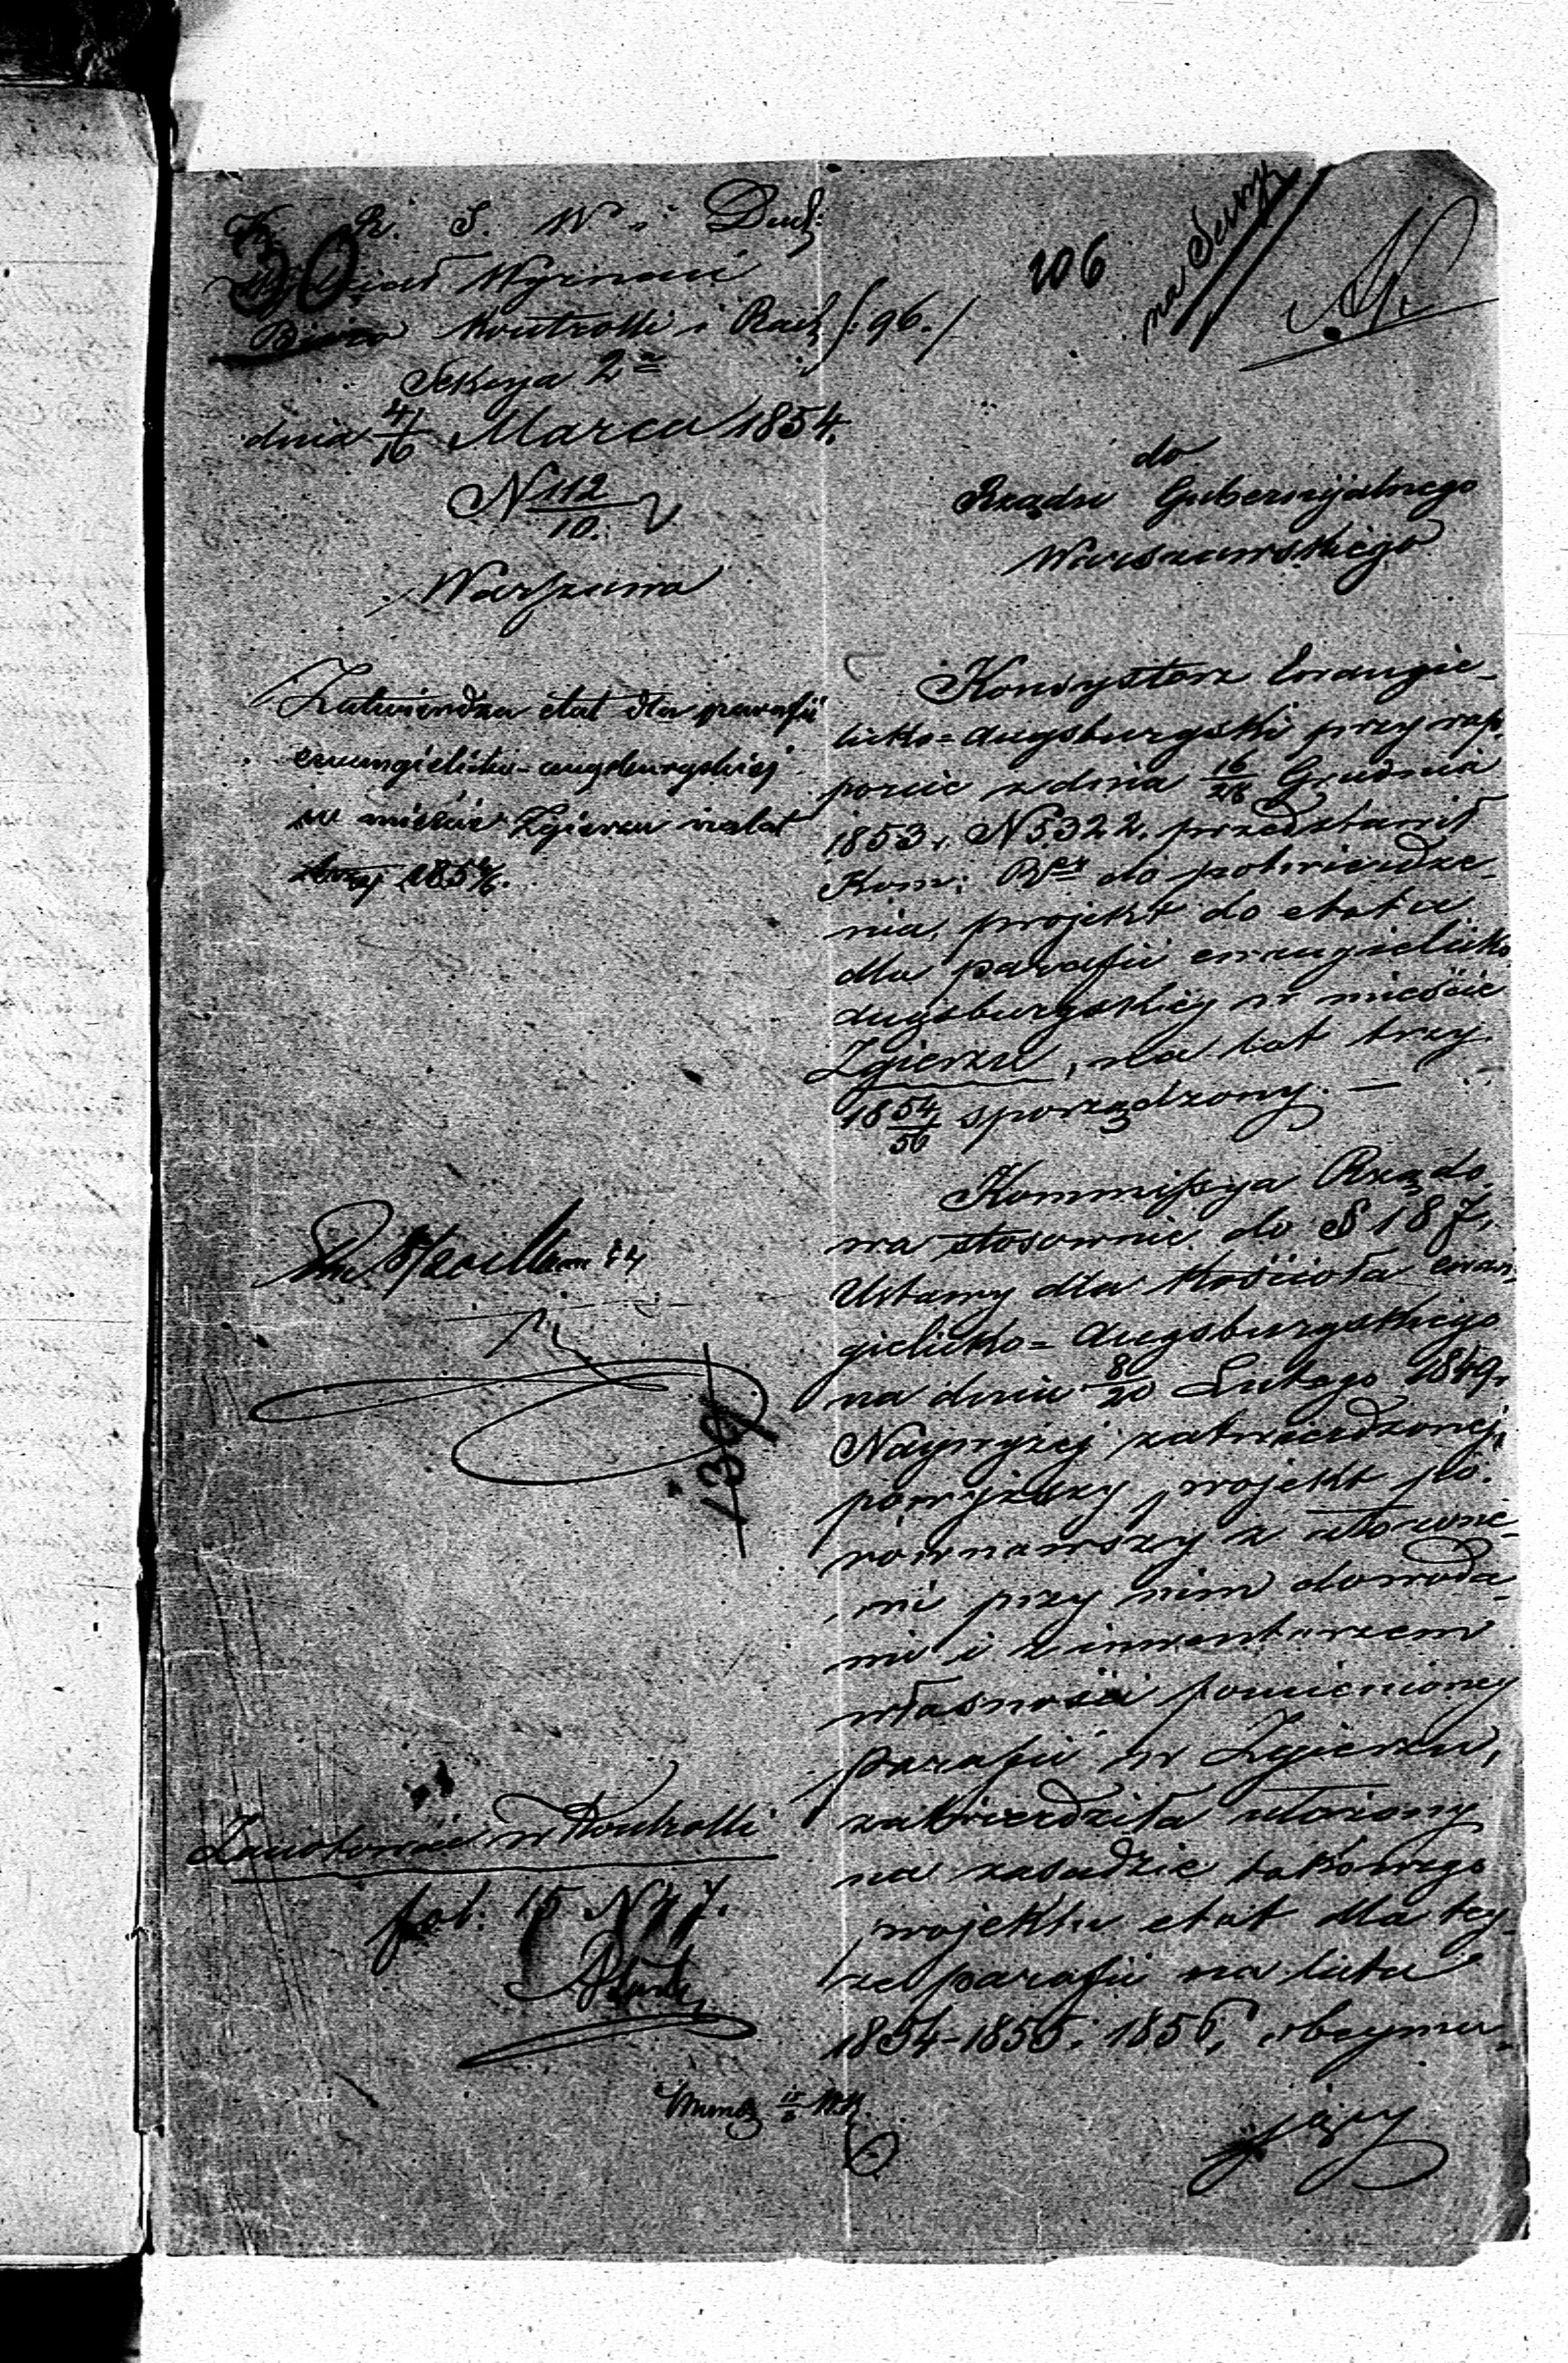 K. R. S. W i Duch:
Wydział Wyznań
Biuro Kontrolli i Rach /: 96. /
Sekcya 2ᵃ
dnia 4/16 Marca 1854.
N 112/10.
Warszawa
Zatwierdza etat dla parafii
ewangielicko-augsburgskiej
w mieście Zgierzu na lat
trzy 1854/6.
139
Zanotować w Kontrolli
fol: 15 N 47.
106
do
Rządu Gubernijalnego
Warszawskiego
Konsystorz Ewangie-
licko=Augsburgski przy rap-
porcie z dnia 16/28 Grudnia
1853 r. N 5322. przedstawił
Kom: Rᵉʸ do potwierdze-
nia, projekt do etatu
dla parafii ewangielicko
Augsburgskiey w mieście
Zgierzu, na lat trzy
18 54/56 sporządzony. —
Kommissya Rządo-
wa stosownie do § 187,
Ustawy dla Kościoła ewan-
gielicko=Augsburgskiego
na dniu 8/20 Lutego 1849 r.
Naywyżej zatwierdzonej,
powyższy projekt po-
równawszy z
przy nim dowoda-
mi i z inwentarzem
własności pomienioney
parafii w Zgierzu,
zatwierdziła ułożony
na zasadzie takowego
projektu etat dla tey-
że parafii na lata
1854-1855 i 1856, obeymu-
jący